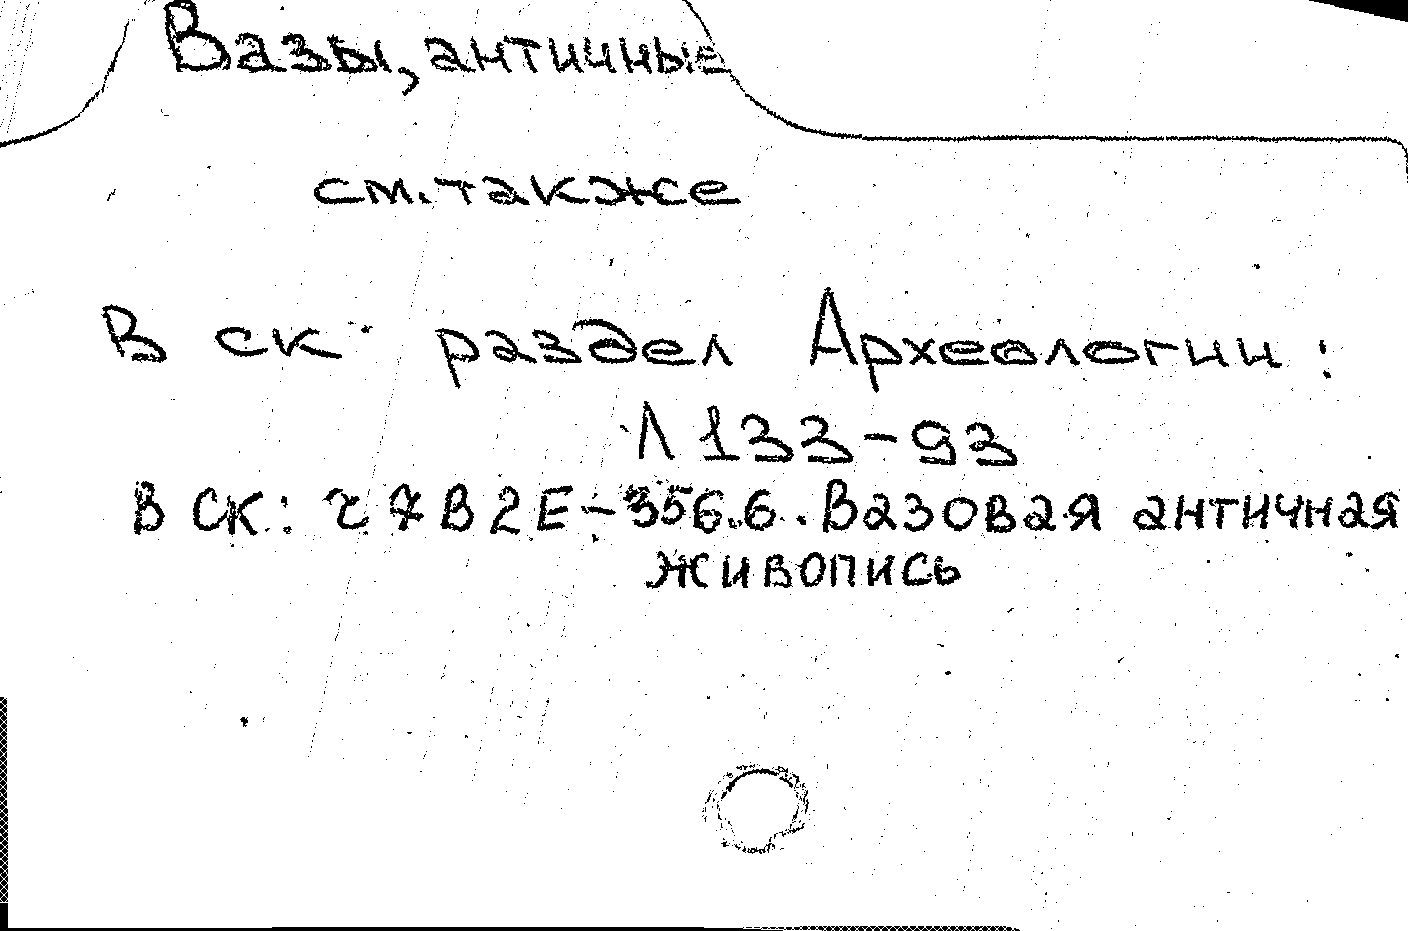 Вазы, античные
см. также
В ск. раздел Археологии:
Л 133-93
В СК: г7В2Е-356.6. Вазовая античная
живопись